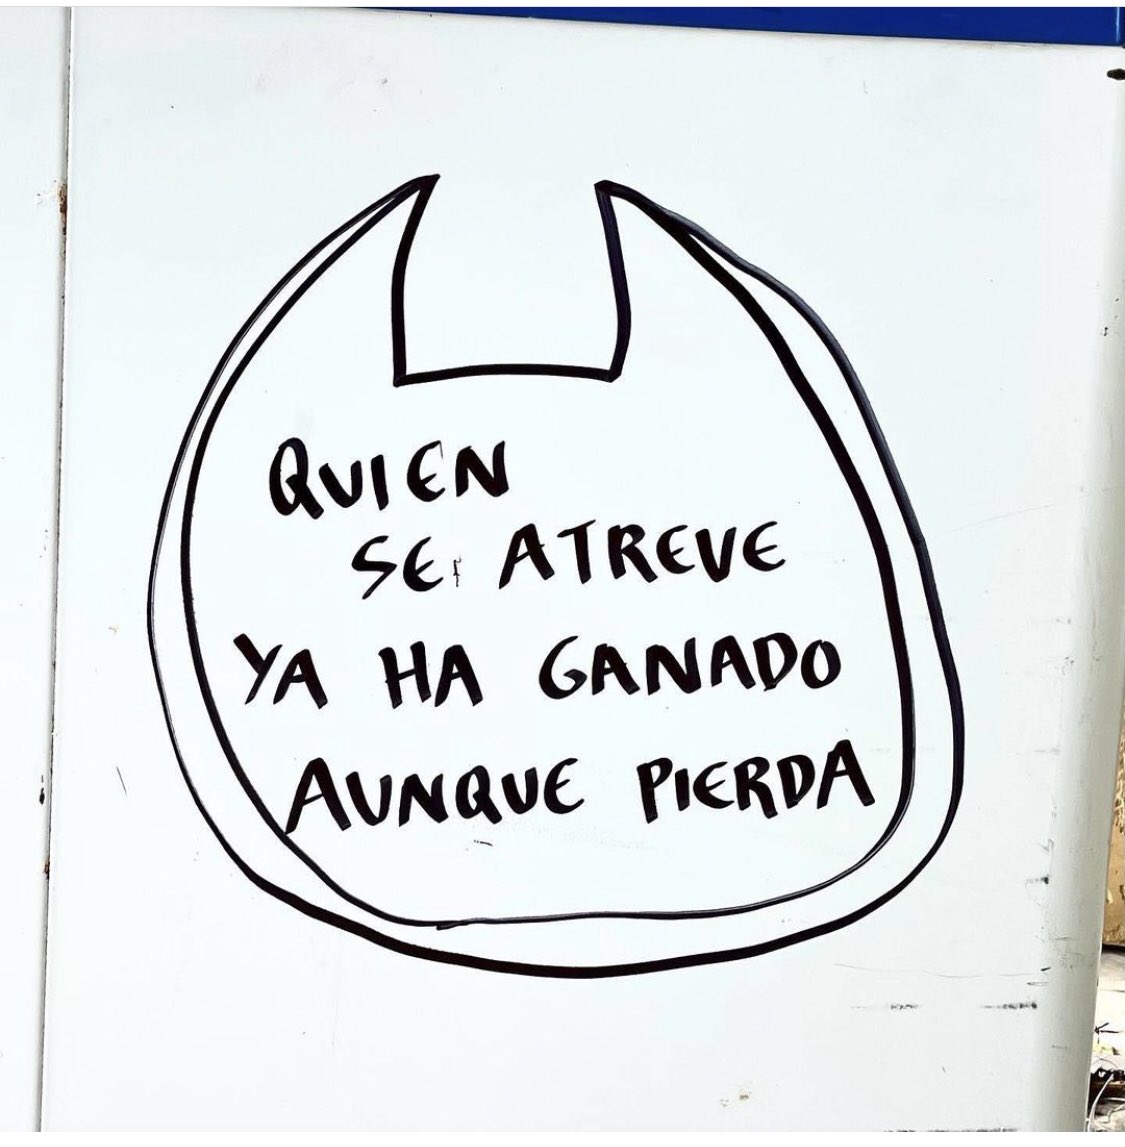 QUIEN
SE ATREVE
YA HA GANADO
AUNQUE PIERDA